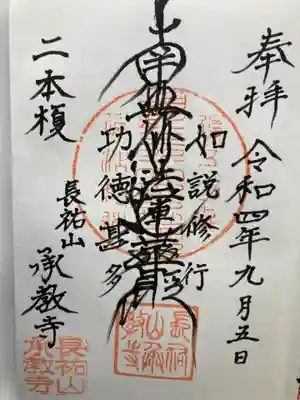 奉拝
令和四年九月五日
如説修行
南無妙法蓮華経
功徳甚多
二本榎
長祐山
承教寺
長祐山
承教寺
長祐山承教寺